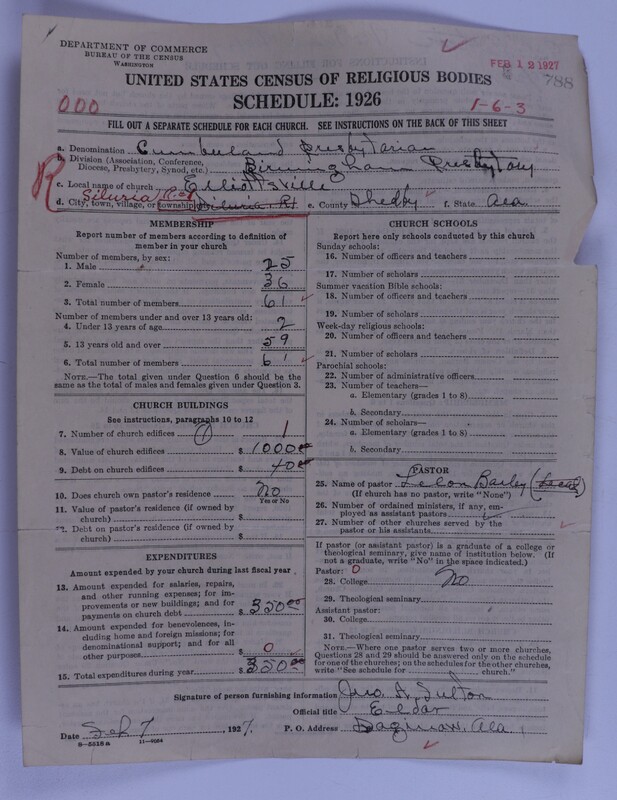 DEPARTMENT OF COMMERCE
BUREAU OF THE CENSUS
WASHINGTON
FEB 12 1927
788
UNITED STATES CENSUS OF RELIGIOUS BODIES
SCHEDULE: 1926
000
1-6-3
FILL OUT A SEPARATE SCHEDULE FOR EACH CHURCH. SEE INSTRUCTIONS ON THE BACK OF THIS SHEET
a. Denomination Cumberland Presbyterian
b. Division (Association, Conference, Diocese, Presbytery, Synod, etc.) Birmingham Presbytery
R
c. Local name of church Elliottsville
Siluria R
d. City, town, village, or township Siluria, R1 e. County Shelby f. State Ala
MEMBERSHIP
Report number of members according to definition of member in your church
Number of members, by sex:
1. Male 25
2. Female 36
3. Total number of members 61
Number of members under and over 13 years old:
4. Under 13 years of age 2
5. 13 years old and over 59
6. Total number of members 61
NOTE.—The total given under Question 6 should be the same as the total of males and females given under Question 3.
CHURCH BUILDINGS
See instructions, paragraphs 10 to 12
7. Number of church edifices (1) 1
8. Value of church edifices $ 1000 00
9. Debt on church edifices $ 40 00
10. Does church own pastor's residence No
Yes or No
11. Value of pastor's residence (if owned by church) $
12. Debt on pastor's residence (if owned by church) $
EXPENDITURES
Amount expended by your church during last fiscal year
13. Amount expended for salaries, repairs, and other running expenses; for improvements or new buildings; and for payments on church debt $ 350 00
14. Amount expended for benevolences, including home and foreign missions; for denominational support; and for all other purposes $ 0
15. Total expenditures during year $ 350 00
CHURCH SCHOOLS
Report here only schools conducted by this church
Sunday schools:
16. Number of officers and teachers
17. Number of scholars
Summer vacation Bible schools:
18. Number of officers and teachers
19. Number of scholars
Week-day religious schools:
20. Number of officers and teachers
21. Number of scholars
Parochial schools:
22. Number of administrative officers
23. Number of teachers—
a. Elementary (grades 1 to 8)
b. Secondary
24. Number of scholars—
a. Elementary (grades 1 to 8)
b. Secondary
PASTOR
25. Name of pastor Lebon Bailey
(If church has no pastor, write "None")
26. Number of ordained ministers, if any, employed as assistant pastors
27. Number of other churches served by the pastor or his assistants
If pastor (or assistant pastor) is a graduate of a college or theological seminary, give name of institution below. (If not a graduate, write "No" in the space indicated.)
Pastor: 0
28. College No
29. Theological seminary
Assistant pastor:
30. College
31. Theological seminary
NOTE.—Where one pastor serves two or more churches, Questions 28 and 29 should be answered only on the schedule for one of the churches; on the schedules for the other churches, write "See schedule for church."
Signature of person furnishing information Jno. A. Sutton
Official title Eldar
Date 7, 1927. P. O. Address Saginaw, Ala.
8-5518a 11-9064